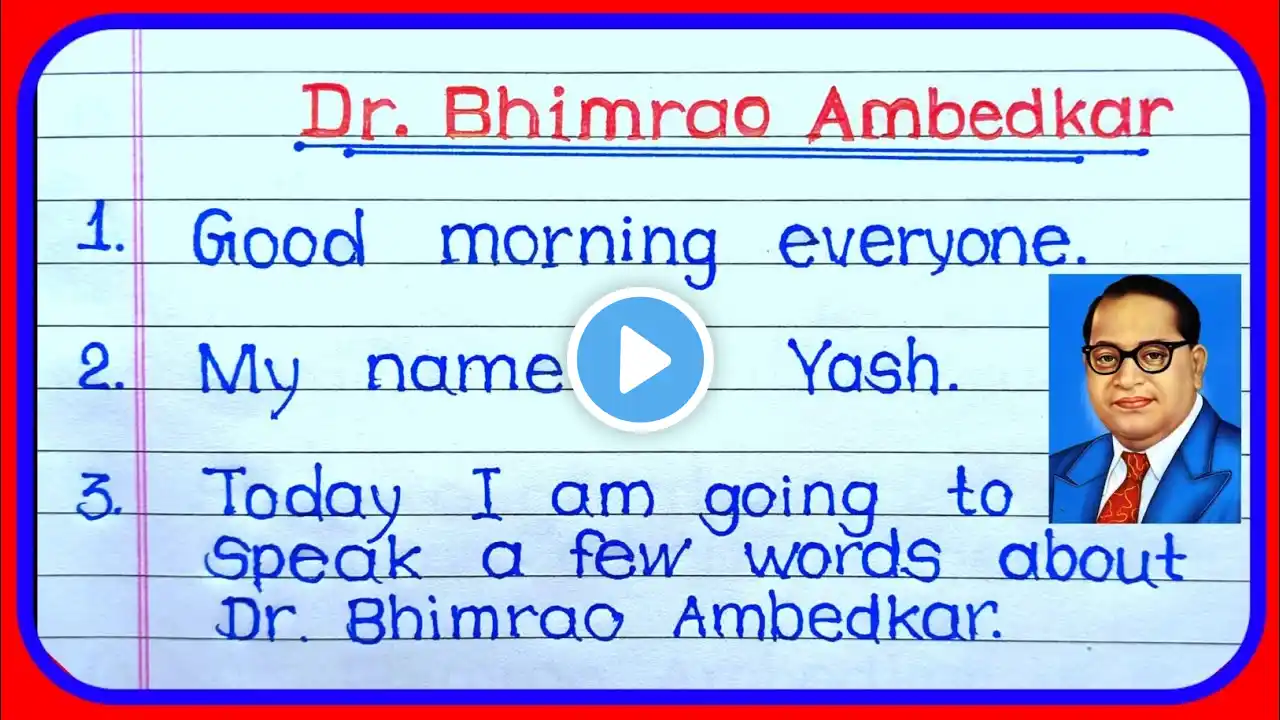 Dr. Bhimrao Ambedkar
1. Good morning everyone.
2. My name Yash.
3. Today I am going to
speak a few words about
Dr. Bhimrao Ambedkar.